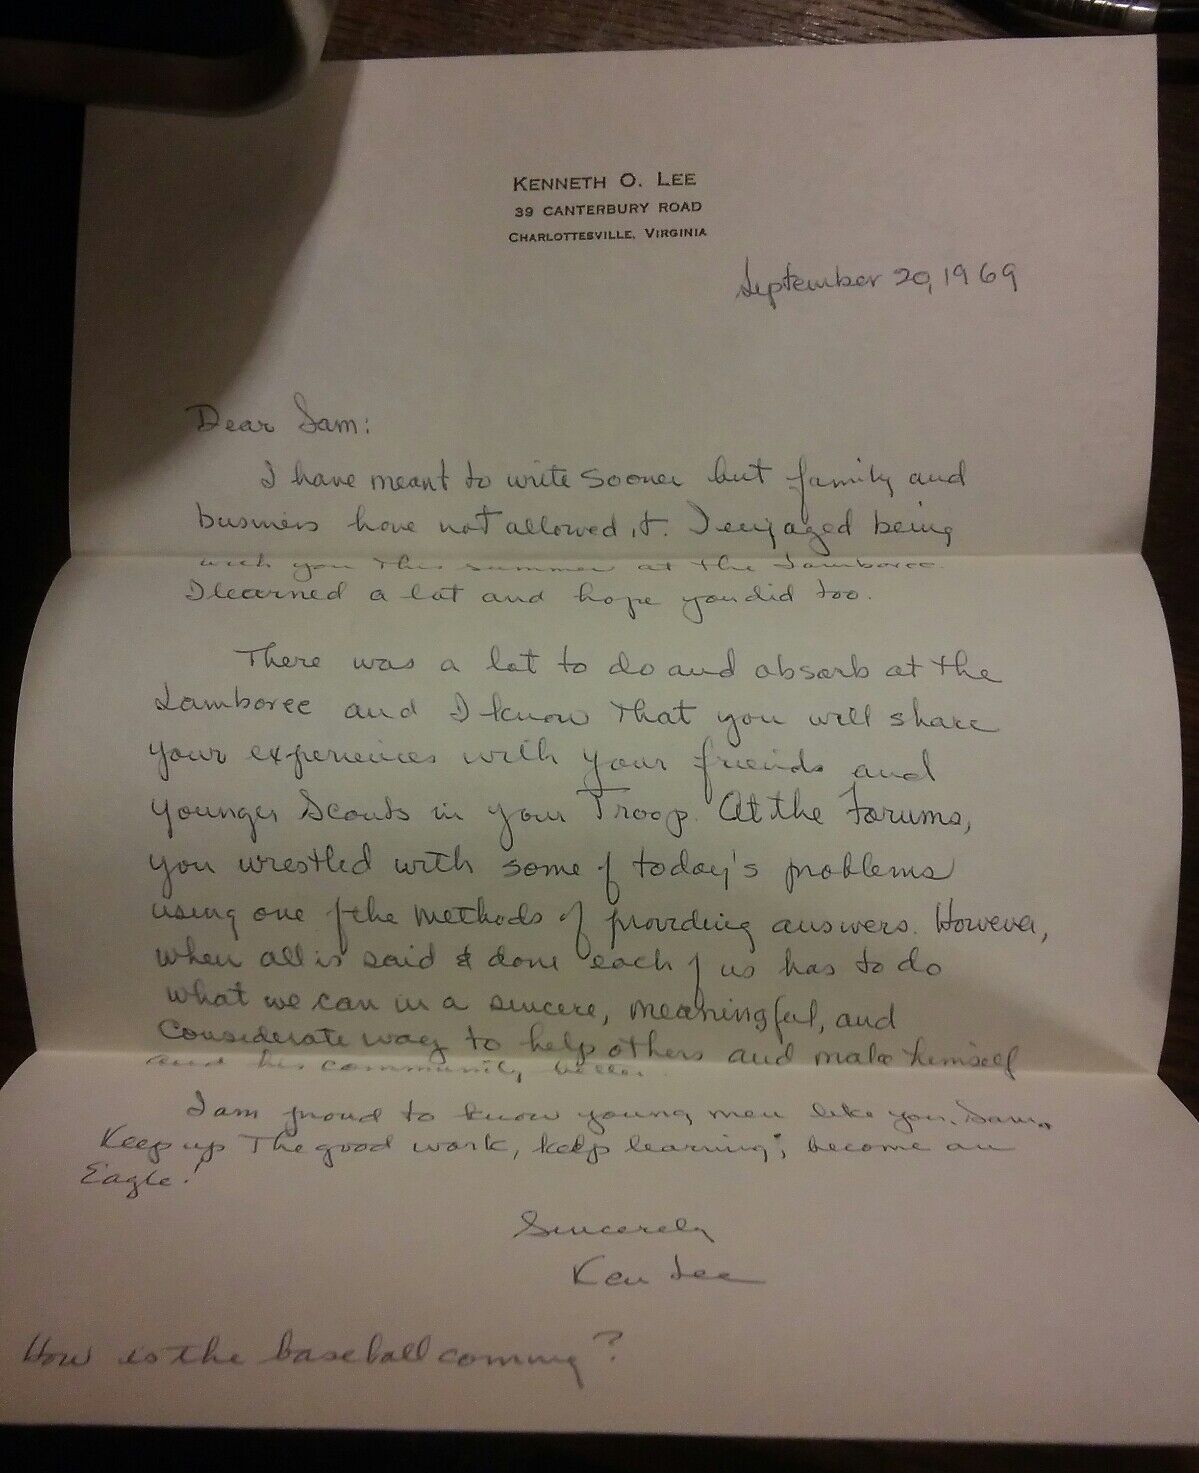 KENNETH O. LEE
39 CANTERBURY ROAD
CHARLOTTESVILLE, VIRGINIA
September 20, 1969
Dear Sam:
I have meant to write sooner but family and
business have not allowed it. I enjoyed being
with you this summer at the Jamboree.
I learned a lot and hope you did too.
There was a lot to do and absorb at the
Jamboree and I know that you will share
your experiences with your friends and
younger Scouts in your Troop. At the Forums,
you wrestled with some of today's problems
using one of the methods of providing answers. However,
when all is said & done each of us has to do
what we can in a sincere, meaningful, and
considerate way to help others and make himself
and his community better.
I am proud to know young men like you, Sam.
Keep up the good work, keep learning; become an
Eagle!
Sincerely
Ken Lee
How is the baseball coming?